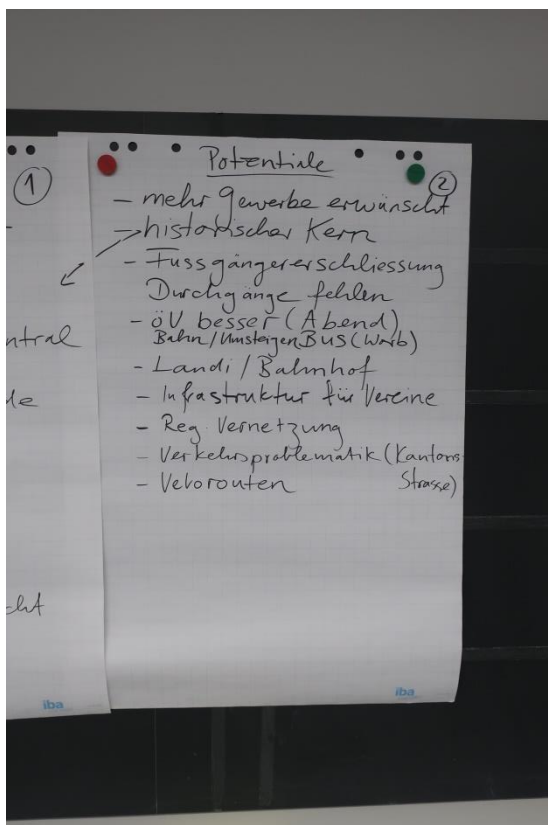 1
ntral
le
cht
iba
Potentiale
2
- mehr Gewerbe erwünscht
- historischer Kern
- Fussgängererschliessung
Durchgänge fehlen
- öV besser (Abend)
Bahn/Umsteigen Bus (Worb)
- Landi / Bahnhof
- Infrastruktur für Vereine
- Reg. Vernetzung
- Verkehrsproblematik (Kantons
- Velorouten Strasse)
iba